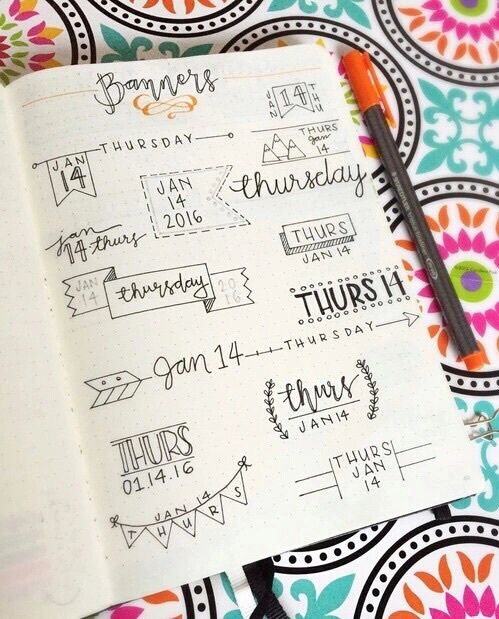 Banners
JAN 14 THU
THURSDAY
JAN
14
THURS
Jan
14
JAN
14
2016
thursday
jan
14 thurs
THURS
JAN 14
JAN
14
thursday
20
16
THURS 14
Jan 14 THURSDAY
thurs
JAN 14
THURS
01.14.16
THURS
JAN
14
JAN 14
THURS